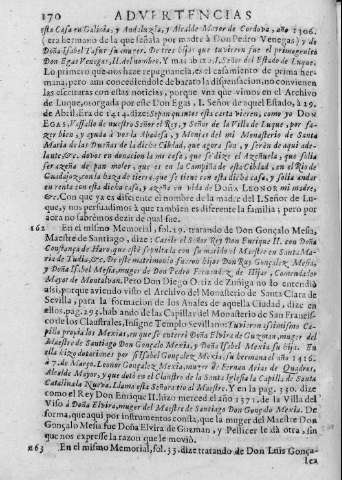 170 ADVERTENCIAS
esta Casa en Galicia, y Andaluzia, y Alcalde Mayor de Cordova, año 1306.
(era hermano de la que señala por madre à Don Pedro Venegas) y de
Doña Isabel Tafur su muger. De tres hijos que tuvieron fue el primogenito
Don Egas Venegas, II. del nombre. Y mas abaxo: I. Señor del Estado de Luque.
Lo primero que nos haze repugnancia es el casamiento de prima hermana,
pero aun concediendole de barato la dispensacion, no convienen
las escrituras con estas noticias, porque vna que vimos en el Archivo
de Luque, otorgada por este Don Egas, I. Señor de aquel Estado, à 29.
de Abril, Era de 1414. dize: Sepan quantos esta carta vieren, como yo Don
EGAS, Vassallo de nuestro Señor el Rey, y Señor de la Villa de Luque, por fazer
bien, y ayuda à ver la Abadesa, y Monjas del mi Monasterio de Santa
Maria de las Dueñas de la dicha Ciudad, que agora son, y serán de aqui adelante,
&c. dovos en donacion la mi casa, que se dize el Azeñuela, que solia
ser azeña de pan moler, que es en la Campiña de esta Ciudad, en el Rio de
Guadajoz, con la haza de tierra que se tiene con esta dicha casa, y solia andar
en renta con esta dicha casa, y azeña en vida de Doña LEONOR mi madre,
&c. Con que ya es diferente el nombre de la madre del I. Señor de Luque,
y nos persuadimos à que tambien es diferente la familia; pero por
aora no sabrèmos dezir de qual fue.
162 En el mismo Memorial, fol. 29. tratando de Don Gonçalo Mesia,
Maestre de Santiago, dize: Casole el Señor Rey Don Enrique II. con Doña
Constança de Haro, que està sepultada con su marido al Maestre en Santa Maria
de Tudia, &c. De este matrimonio fueron hijos Don Ruy Gonçalez Mesia,
y Doña Isabel Mesia, muger de Don Pedro Fernandez de Hijar, Comendador
Mayor de Montalvan. Pero Don Diego Ortiz de Zuñiga no lo entendiò
assi, porque aviendo visto el Archivo del Monasterio de Santa Clara de
Sevilla, para la formacion de los Anales de aquella Ciudad, dize en
ellos, pag. 295. hablando de las Capillas del Monasterio de San Francisco
de los Claustrales, Insigne Templo Sevillano: Tuvieron assimismo Capilla
propia los Mexias, en que se enterrò Doña Elvira de Guzman, muger del
Maestre de Santiago Don Gonçalo Mexia, y Doña Isabel Mexia su hija. En
ella hizo dotaciones por si Isabel Gonçalez Mexia, su hermana el año 1416.
à 7. de Março. Leonor Gonçalez Mexia, muger de Fernan Arias de Quadros,
Alcalde Mayor, y que dotò en el Claustro de la Santa Iglesia la Capilla de Santa
Catalina la Nueva. Llama este Señor a tio al Maestre. Y en la pag. 530. dize
como el Rey Don Enrique II. hizo merced el año 1371. de la Villa del
Viso à Doña Elvira, muger del Maestre de Santiago Don Gonçalo Mexia. De
forma, que aqui por instrumentos consta, que la muger del Maestre Don
Gonçalo Mesia fue Doña Elvira de Guzman, y Pellicer le dà otra, sin
que nos expresse la razon que le moviò.
163 En el mismo Memorial, fol. 33. dize tratando de Don Luis Gonça-
lez